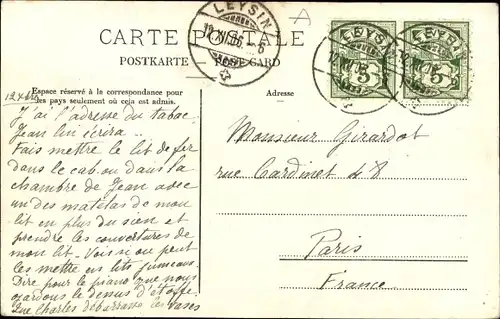 CARTE POSTALE
POSTKARTE POST CARD
LEYSIN
LEYSIN
LEYSIN
5
5
Espace réservé à la correspondance pour
les pays seulement où cela est admis.
Adresse
J'ai l'adresse du tabac
Jean lui écrira..
Fais mettre le lit de fer
dans le cab. ou dans la
chambre de Jean avec
un des matelas de mon
lit en plus du sien et
prendre les couvertures de
mon lit. Vois si on peut
les mettre en lits jumeaux.
Dire pour le piano que nous
gardons le dessus d'étoffe
Que Charles débarrasse les vases
Monsieur Girardot
rue Cardinet 48
Paris
France